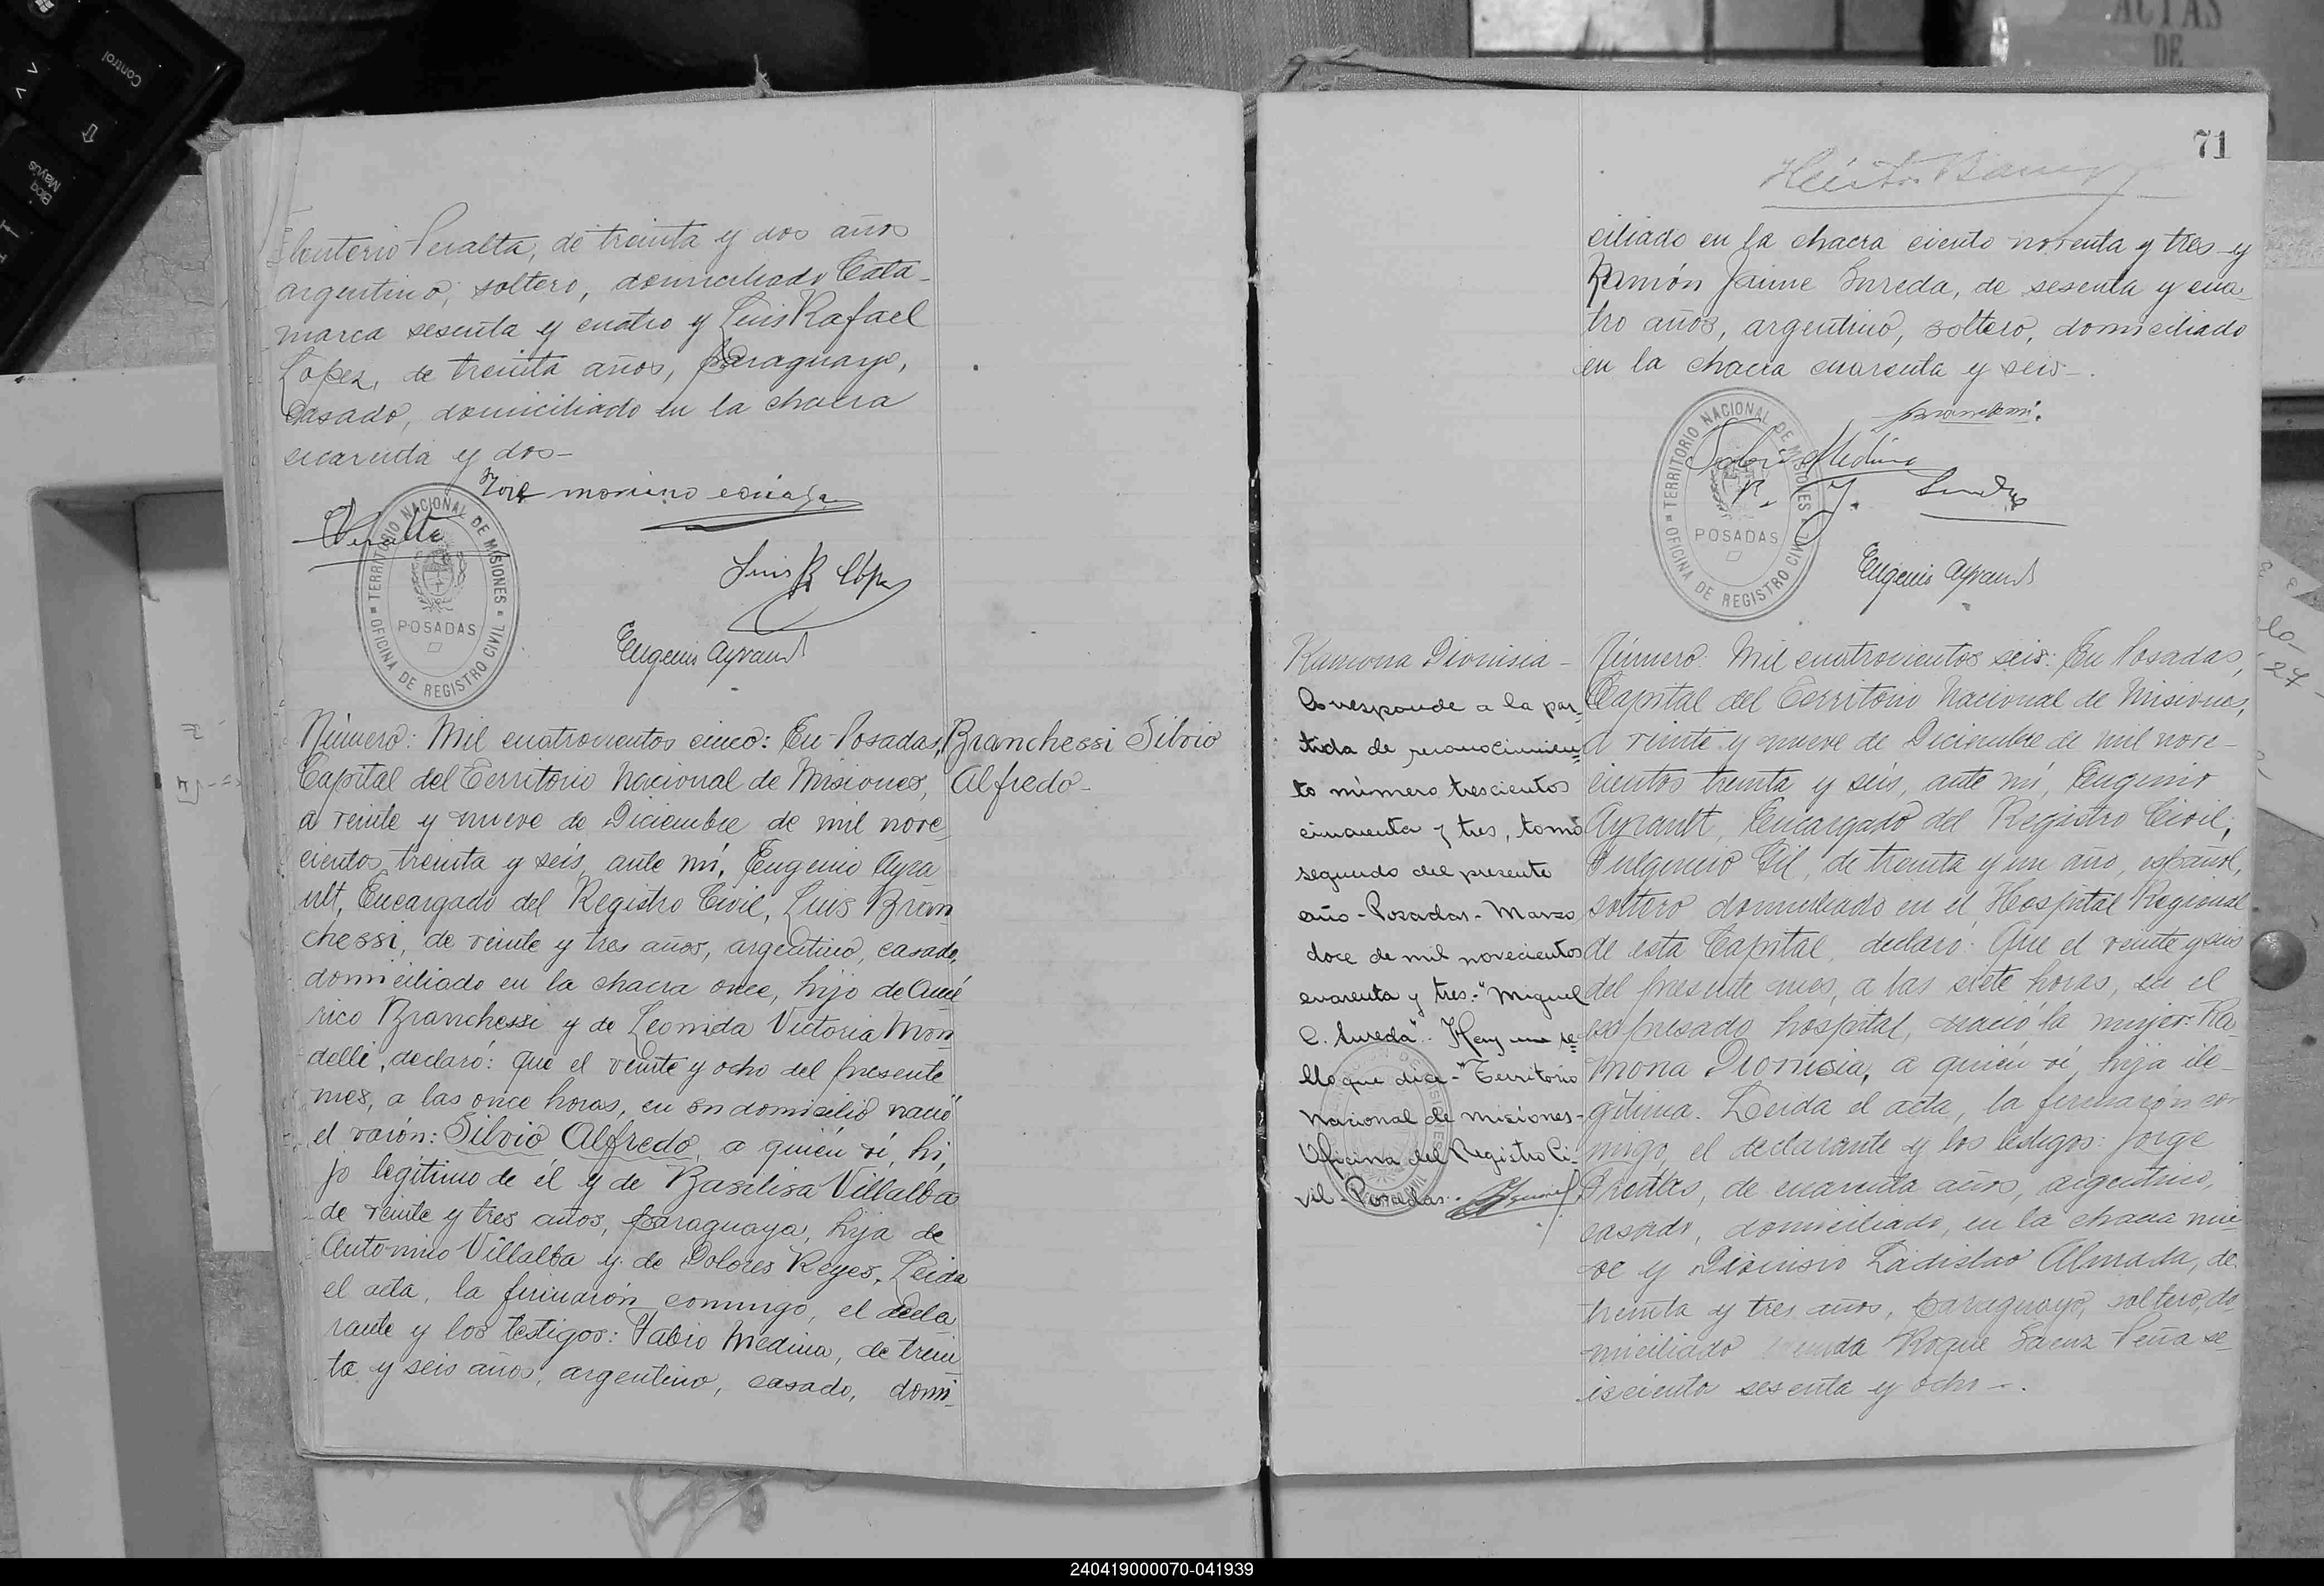 Control
Bloq
Mayús
ACTAS
DE
Eleuterio Peralta, de treinta y dos años
argentino, soltero, domiciliado Cata-
marca sesenta y cuatro y Luis Rafael
López, de treinta años, paraguayo,
casado, domiciliado en la chacra
cuarenta y dos-
Peralta
Luis R López
TERRITORIO NACIONAL DE MISIONES
POSADAS
OFICINA DE REGISTRO CIVIL
Eugenio Ayrault
Número: Mil cuatrocientos cinco: En Posadas,
Capital del Territorio Nacional de Misiones,
a veinte y nueve de Diciembre de mil nove
cientos treinta y seis, ante mí, Eugenio Ayra
ult, Encargado del Registro Civil, Luis Bran
chessi, de veinte y tres años, argentino, casado,
domiciliado en la chacra once, hijo de Amé
rico Branchessi y de Leonida Victoria Mon
delli, declaró: Que el veinte y ocho del presente
mes, a las once horas, en su domicilio nació
el varón: Silvio Alfredo, a quién ví, hi
jo legítimo de él y de Basilisa Villalba
de veinte y tres años, paraguaya, hija de
Antonino Villalba y de Dolores Reyes. Leida
el acta, la firmarón conmigo, el decla
rante y los testigos: Fabio Medina, de trein
ta y seis años, argentino, casado, domi-
Branchessi Silvio
Alfredo-
71
ciliado en la chacra ciento noventa y tres y
Ramón Jaime Sureda, de sesenta y cua
tro años, argentino, soltero, domiciliado
en la chacra cuarenta y seis-.
Branchessi
Fabio Medina
R. J. Sureda
TERRITORIO NACIONAL DE MISIONES
POSADAS
OFICINA DE REGISTRO CIVIL
Eugenio Ayrault
Ramona Dionisia-
Corresponde a la par-
tida de reconocimien-
to número trescientos
cincuenta y tres, tomo
segundo del presente
año-Posadas-Marzo
doce de mil novecientos
cuarenta y tres-"Miguel
C. Sureda". Hay un se-
llo que dice-"Territorio
Nacional de Misiones-
Oficina del Registro Ci-
vil-Posadas.
Número: Mil cuatrocientos seis: En Posadas,
Capital del Territorio Nacional de Misiones,
a veinte y nueve de Diciembre de mil nove-
cientos treinta y seis, ante mí, Eugenio
Ayrault, Encargado del Registro Civil,
Fulgencio Gil, de treinta y un año, español,
soltero domiciliado en el Hospital Regional
de esta Capital, declaró: Que el veinte y seis
del presente mes, a las siete horas, en el
expresado hospital, nació la mujer: Ra-
mona Dionisia, a quién ví, hija ile-
gítima. Leida el acta, la firmarón con
migo, el declarante y los testigos: Jorge
de cuarenta años, argentino,
casado, domiciliado, en la chacra nue
ve y Dionisio Ladislao Almada, de
treinta y tres años, paraguayo, soltero, do
miciliado Roque Saenz Peña se-
iscientos sesenta y ocho-.
240419000070-041939